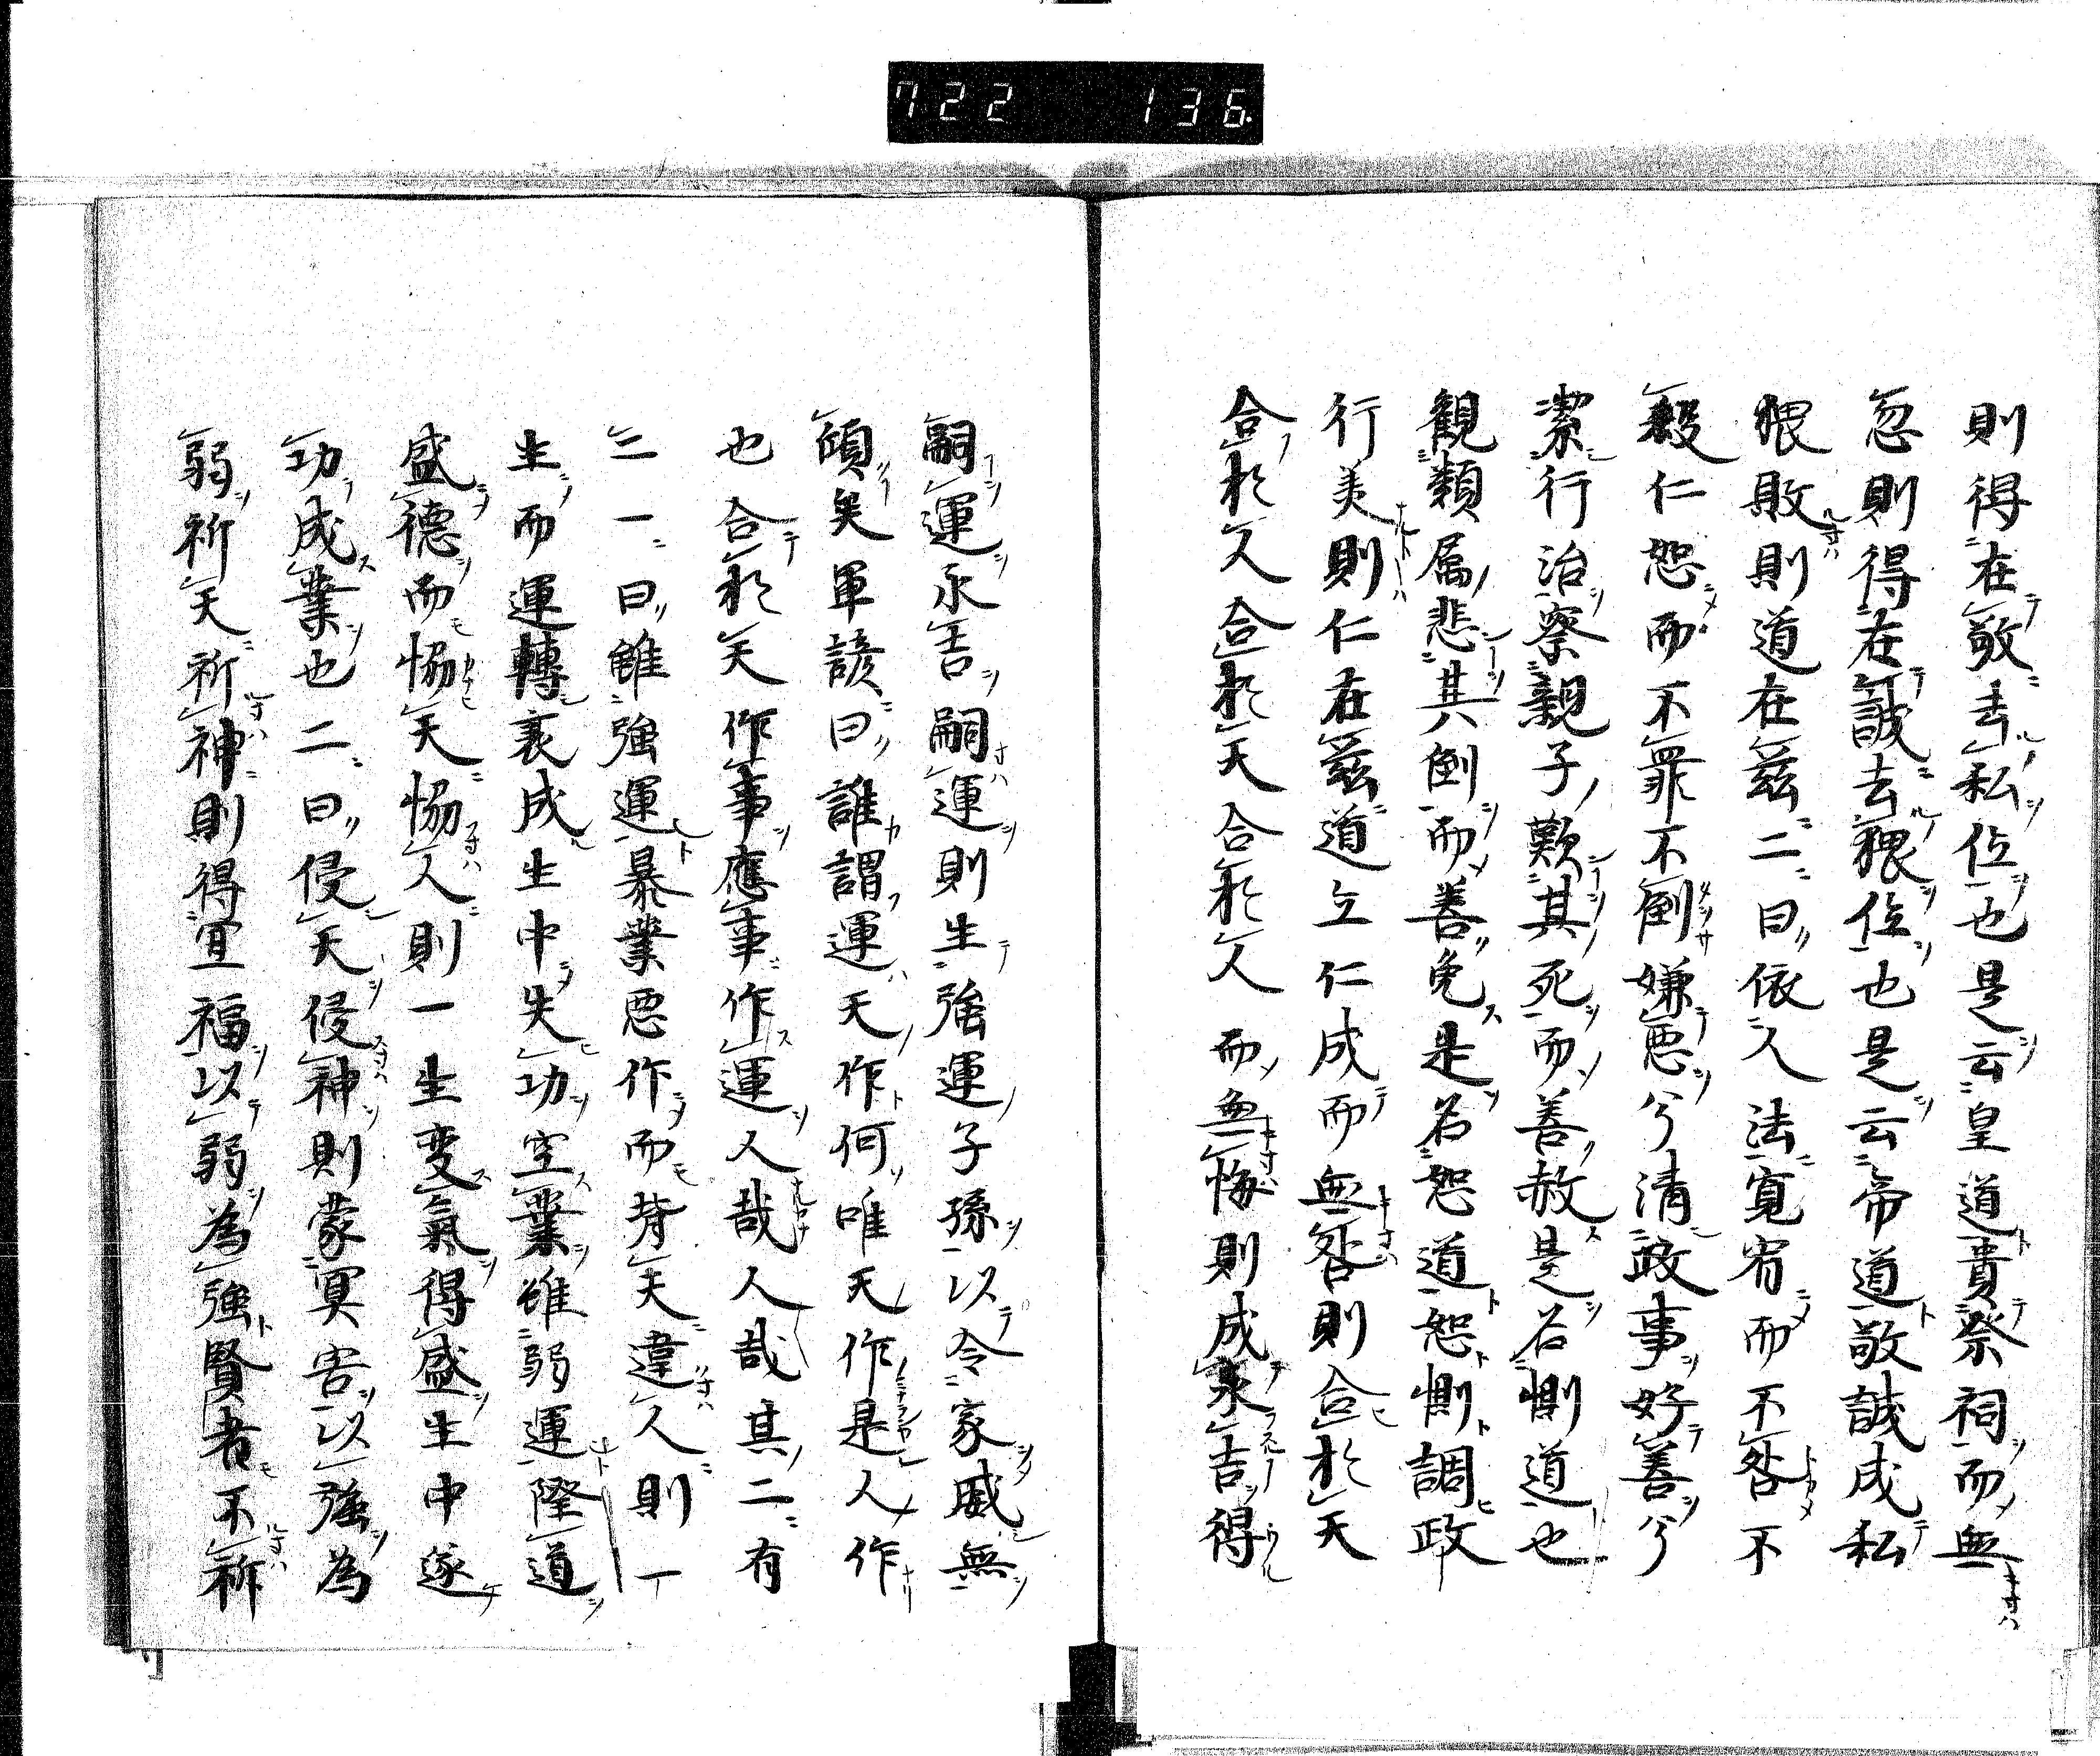 722 136
則得在敬去私位也是云皇道貴祭祠而無
忽則得在誠去猥位也是云帝道敬誠成私
猥敗則道在茲二曰依人法寬宥而不咎不
殺仁恕而不罪不倒嫌悪兮清政事好善兮
潔行治察親子歎其死而善赦是名惻道也
觀類属悲其倒而善免是名恕道恕惻調政
行美則仁在茲道立仁成而無咎則合於天
合於人合於天合於人而無悔則成永吉得
嗣運永吉嗣運則生強運子孫以令家威無
傾矣軍諺曰誰謂運天作何唯天作是人作
也合於天作事應事作運人哉人哉其二有
二一曰雖強運暴業悪作而背天違人則一
生而運轉衰成生中失功空業雖弱運隆道
盛德而協天協人則一生変氣得盛生中遂
功成業也二曰侵天侵神則蒙冥害以強為
弱祈天祈神則得冝福以弱為強賢者不祈